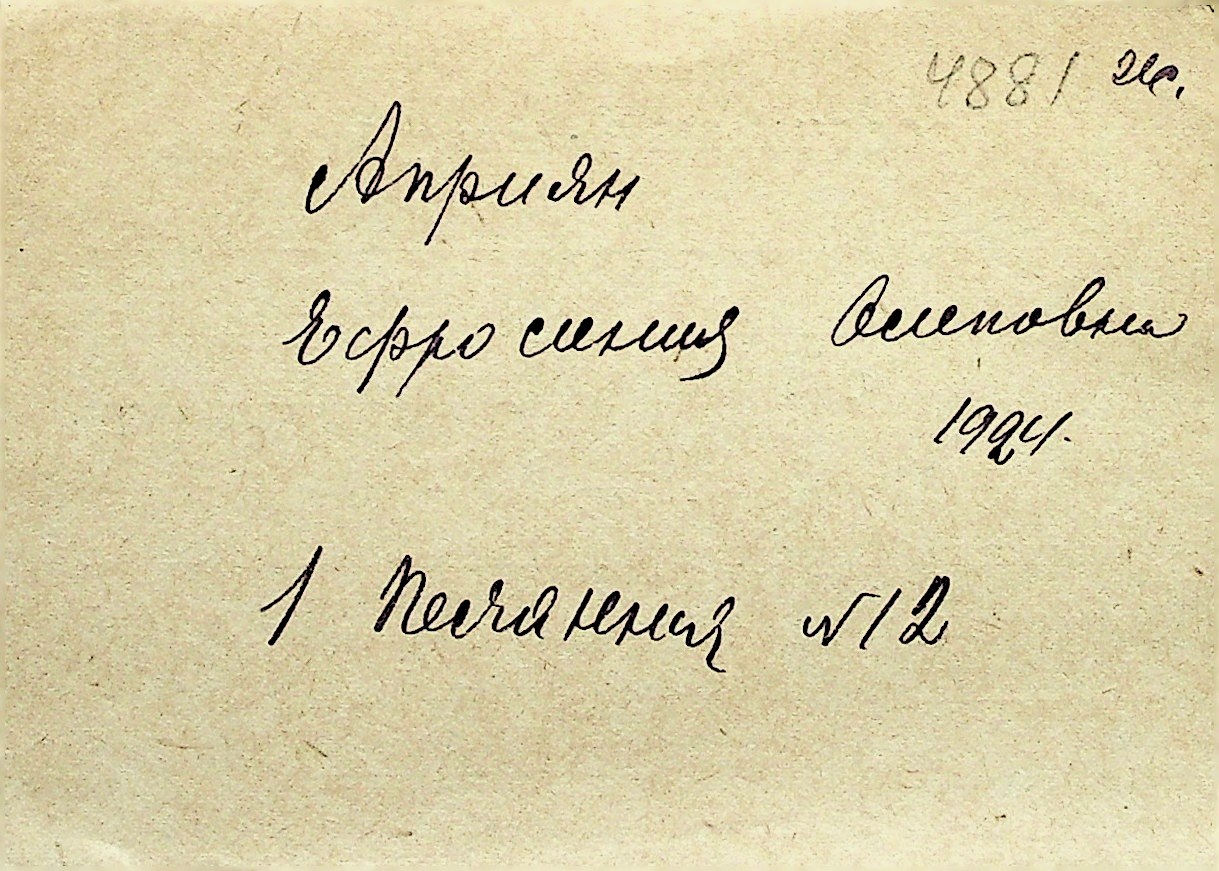 4881
Априян
Ефросиния Осиповна
1924.
1 Песчанная №12